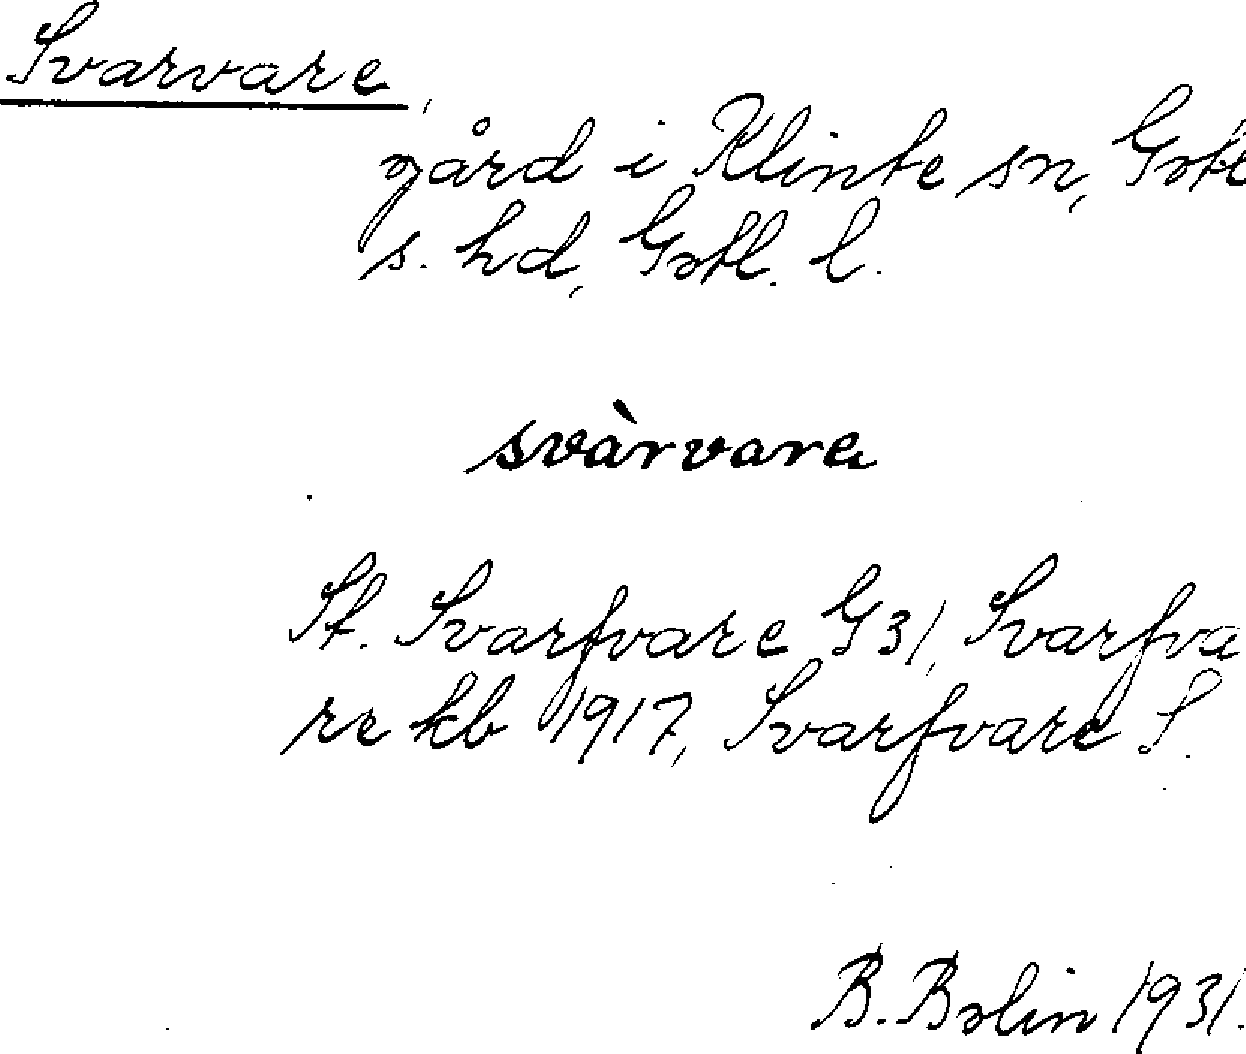 Svarvare,
gård i Klinte sn, Gotl
s. hd, Gotl. l.
svàrvare
St. Svarfvare G31, Svarfva
re kb 1917, Svarfvare S.
B. Bolin 1931.